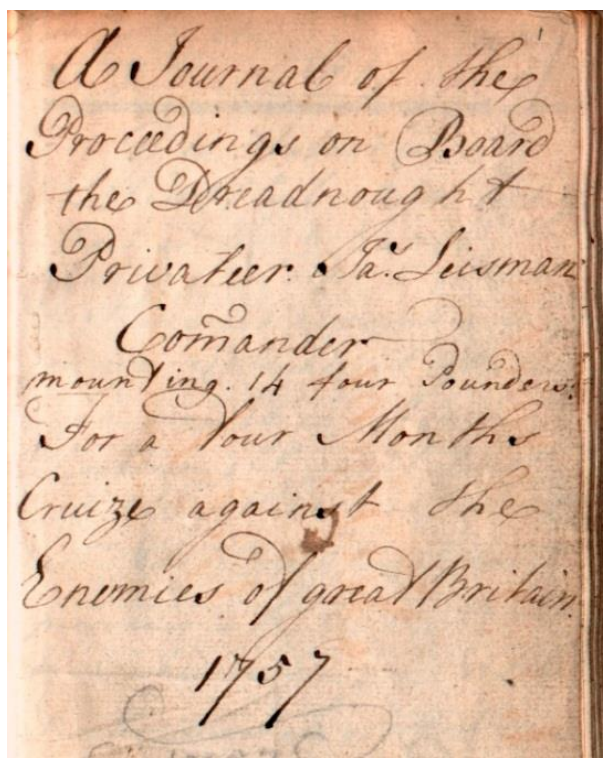 A Journal of the
Proceedings on Board
the Dreadnought
Privateer. Jaˢ. Leisman
Com̃ander
mounting. 14 four Pounders.
For a four Months
Cruize against the
Enemies of great Britain.
1757